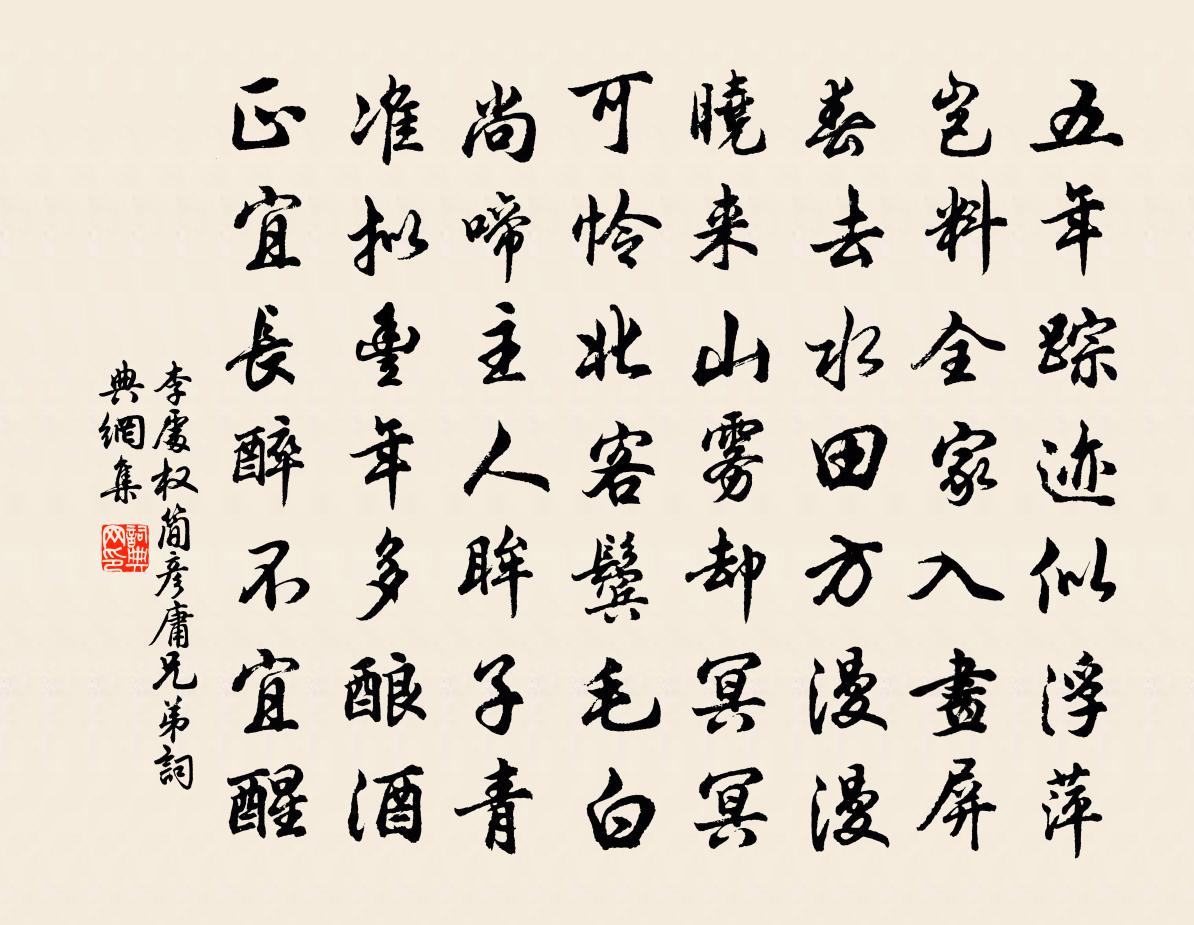 五年踪迹似浮萍
岂料全家入畫屏
春去水田方漫漫
曉来山雾却冥冥
可怜北客鬓毛白
尚啼主人眸子青
准拟豐年多酿酒
正宜長醉不宜醒
李處权简彦庸兄弟詞
典網集
詞典
网印